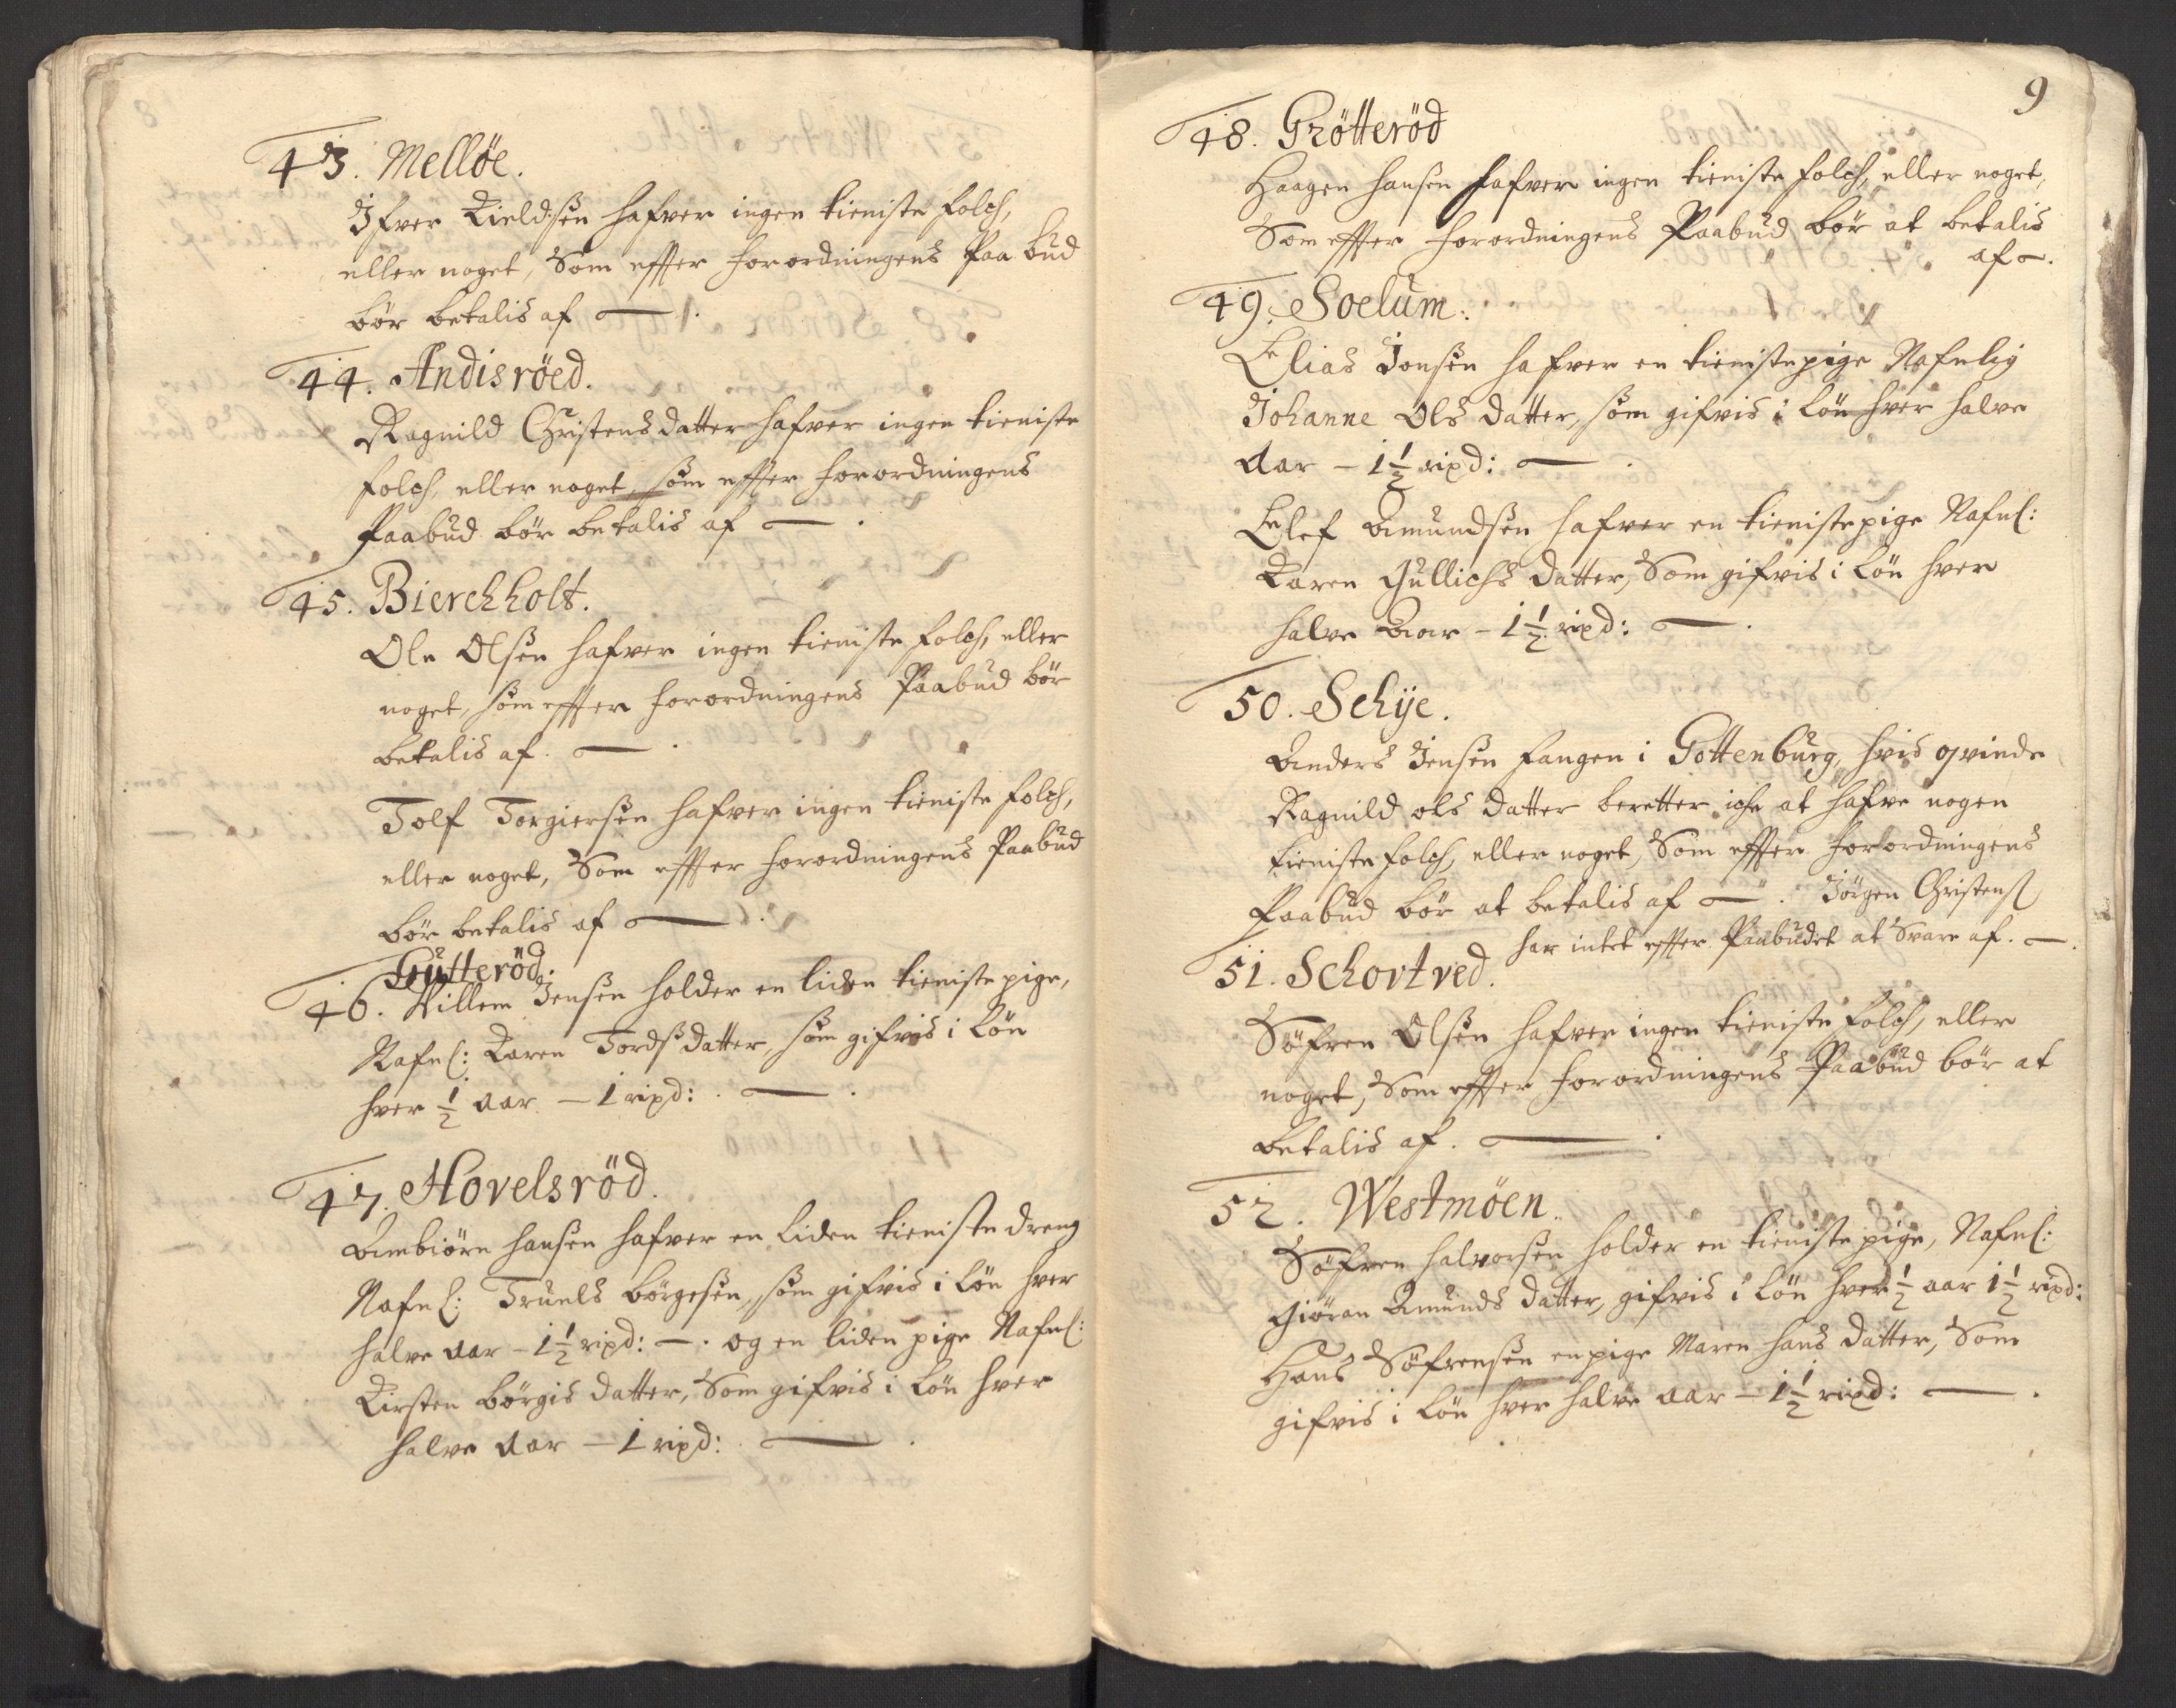 43. Melløe.
Ifver Kieldsen hafver ingen tieniste folch,
eller noget, Som effter forordningens Paabud
bør betalis af —.
44. Andisröed.
Ragnild Christensdatter hafver ingen tieniste
folch, eller noget, som effter forordningens
Paabud bör betalis af —.
45. Bierchholt.
Ole Olsen hafver ingen tieniste folch, eller
noget, som effter forordningens Paabud bör
betalis af. —.
Tolf Torgiersen hafver ingen tieniste folch,
eller noget, Som effter forordningens Paabud
bör betalis af —.
Gutteröd.
46. Willem Jensen holder en liden tieniste pige,
Nafnl: Karen Tordsdatter, som gifvis i Lön
hver ½ aar — 1 rixd: —.
47. Hovelsröd.
Ambiörn hansen hafver en liden tieniste dreng
Nafnl: Truels börgesen, som gifvis i Lön hver
halve aar — 1½ rixd: —. og en liden pige Nafnl:
Kirsten börgis datter, Som gifvis i Lön hver
halve aar — 1 rixd: —.
9
48. Grötteröd
Haagen hansen hafver ingen tieniste folch, eller noget,
Som effter forordningens Paabud bör at betalis
af —.
49. Soelum.
Elias Jonsen hafver en tienistepige Nafnlig
Johanne Ols datter, som gifvis i Lön hver halve
Aar — 1½ rixd: —.
Elef Amundsen hafver en tienistepige Nafnl:
Karen Gullichs datter, Som gifvis i Lön hver
halve Aar — 1½ rixd: —.
50. Schije.
Anders Jensen fangen i Gottenburg, hvis qvinde
Ragnild ols datter beretter iche at hafve nogen
tieniste folch, eller noget, Som effter forordningens
Paabud bör at betalis af —. Jörgen Christens
har intet effter Paabudet at Svare af. —.
51. Schortved.
Söfren Olsen hafver ingen tieniste folch, eller
noget, Som effter forordningens Paabud bör at
betalis af. —.
52. Westmöen.
Söfren halvorsen holder en tieniste pige, Nafnl:
Giöran Amunds datter, gifvis i Lön hver ½ aar 1½ rixd:
Hans Söfrensen en pige Maren hans datter, Som
gifvis i Lön hver halve aar — 1½ rixd: —.